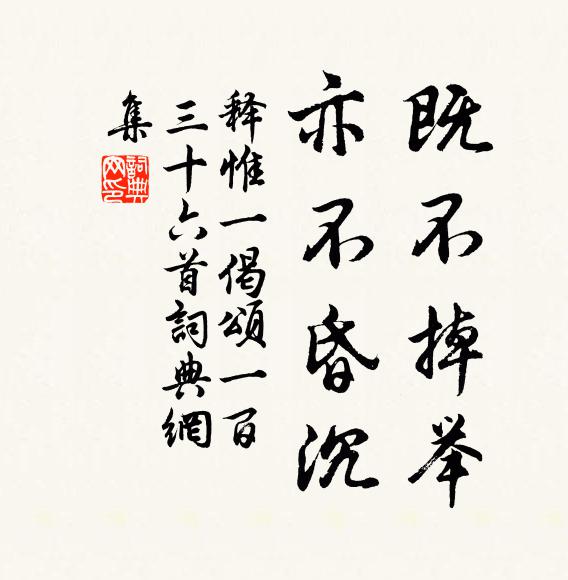 既不掉举
亦不昏沉
释惟一偈颂一百
三十六首詞典網
集
詞典
网印